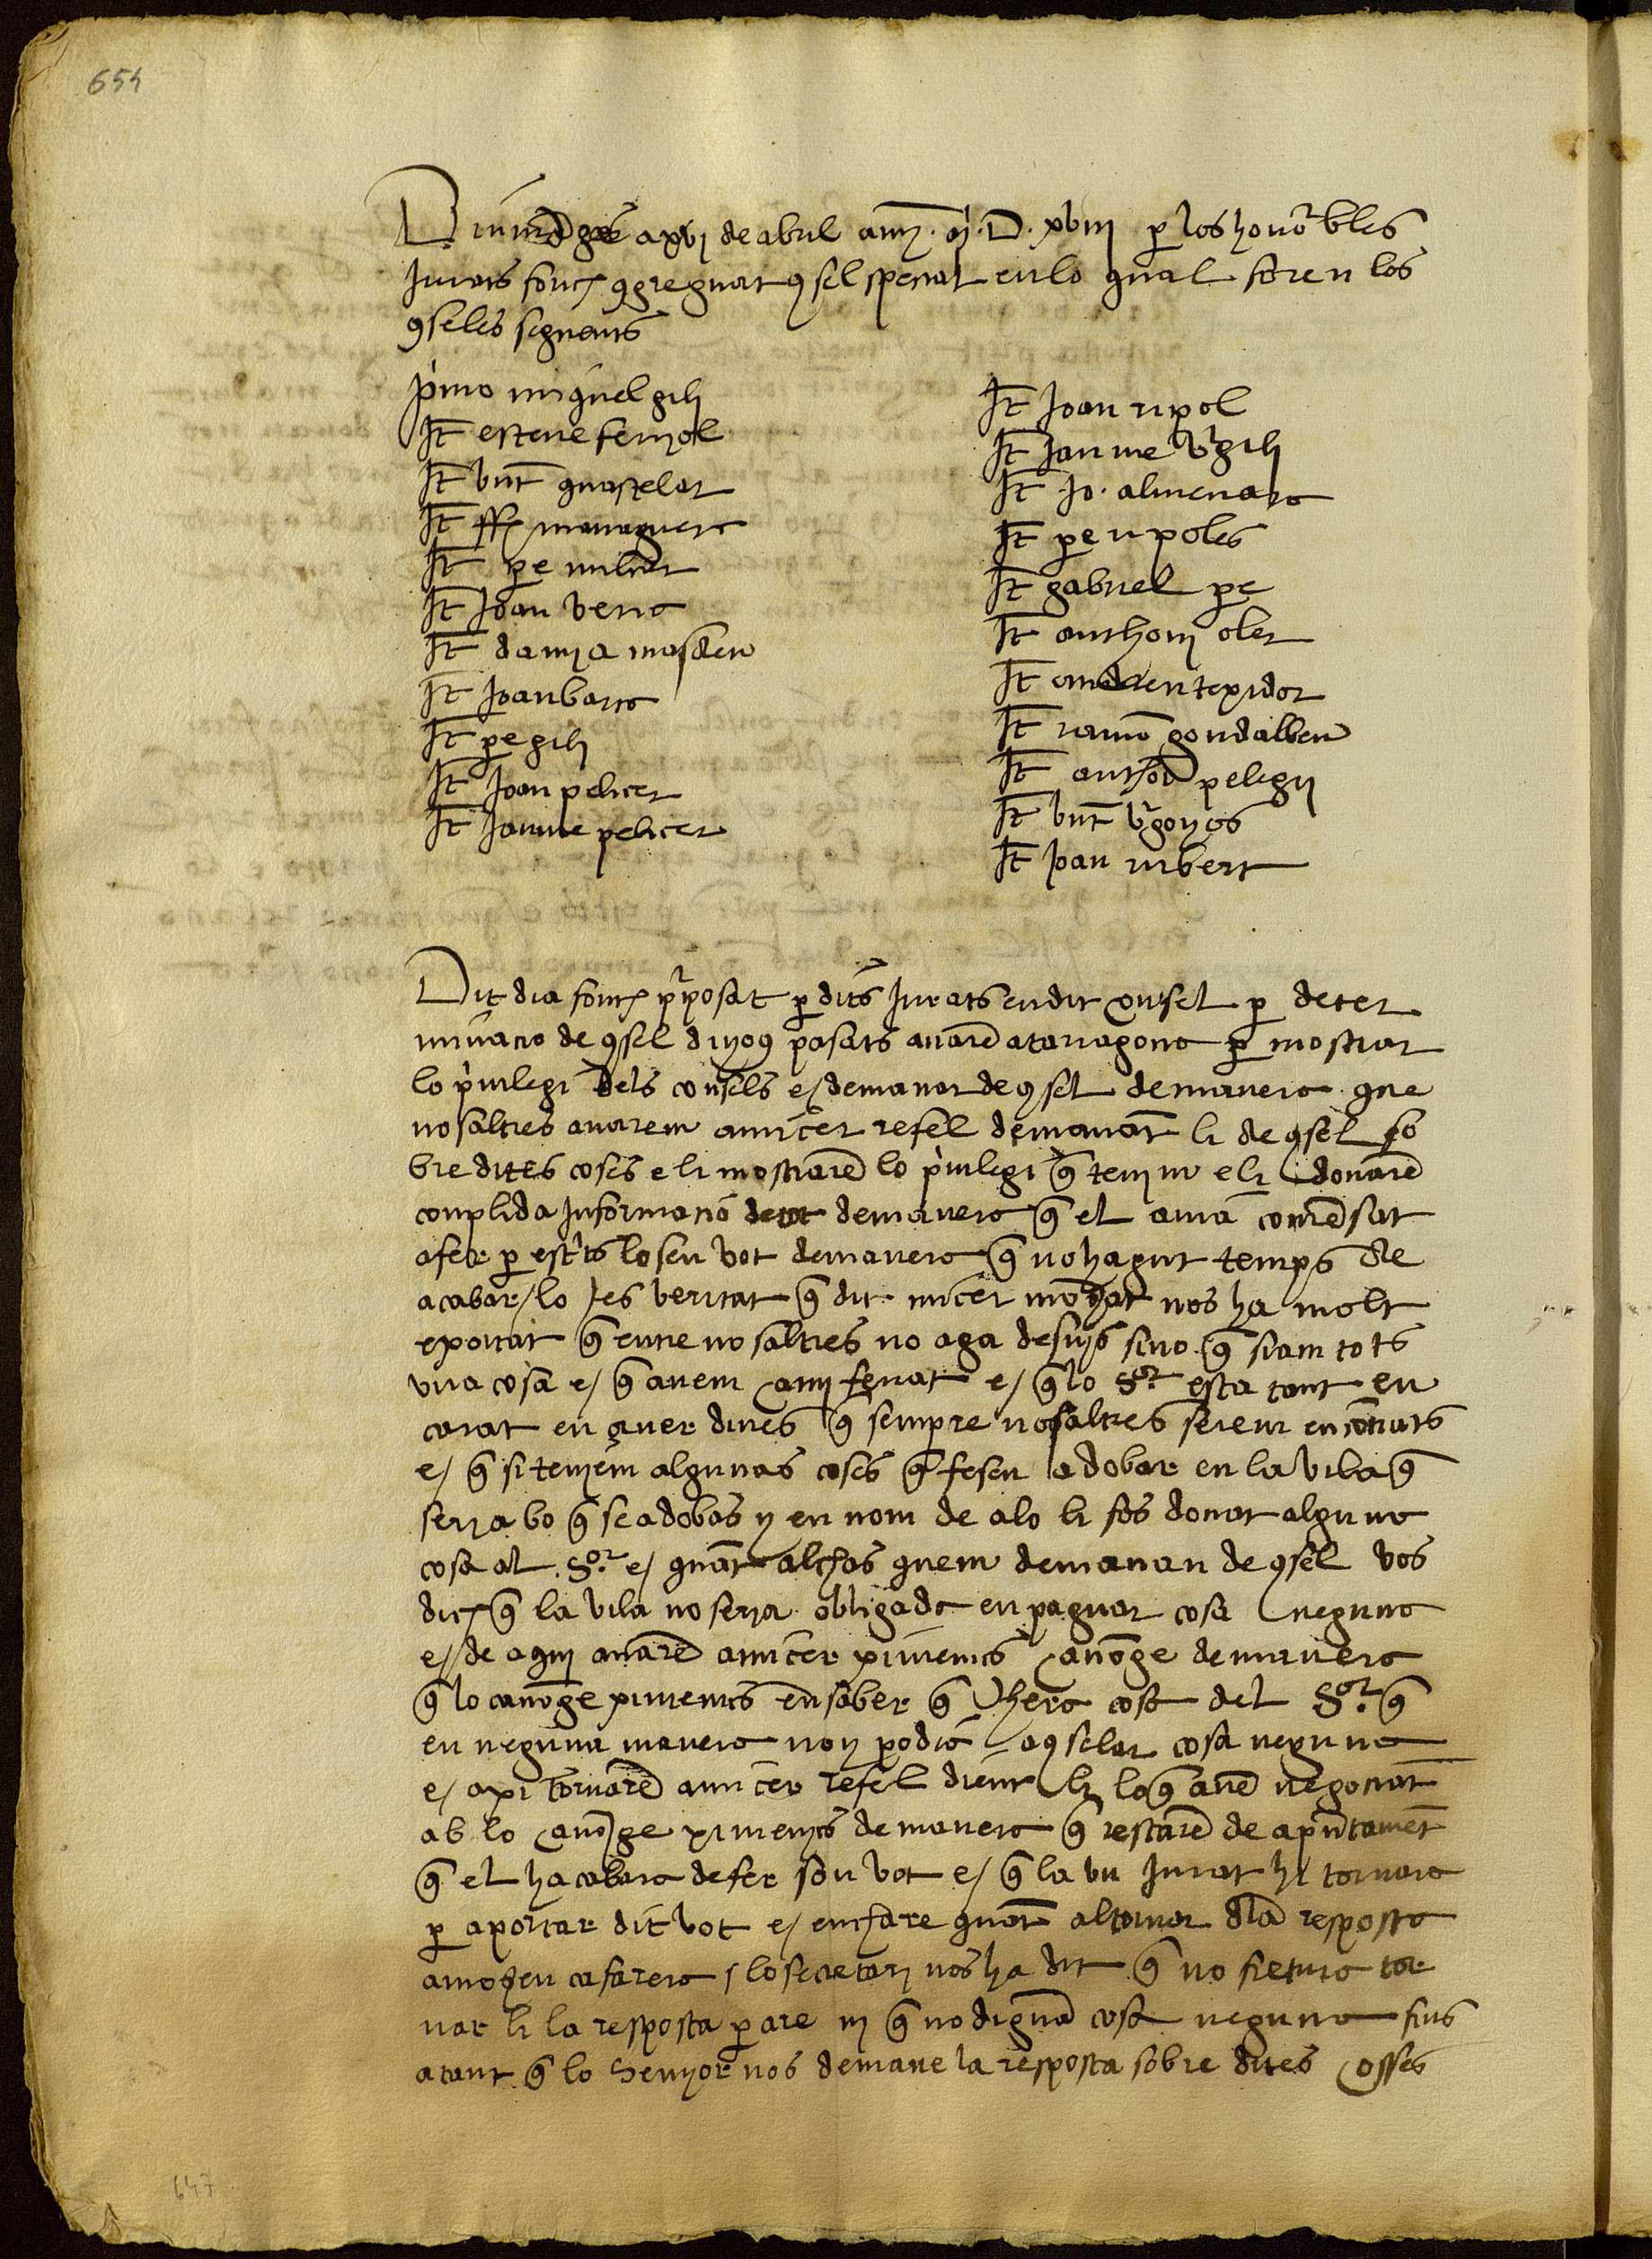 654
Diumēges a xvj de abril any .m. D. xviij per los honorbles
Jurats fonch 9gregat 9sel special en lo qual foren los
9selés seguents
primo miquel gili
It estene fenyol
It bnt guastelar
It ffr managuera
It pe milar
It Joan vera
It damia masdeu
It Joan barca
It pe gili
It Joan pelicer
It Jaume pelicer
It Joan ripol
It Jaume vrgili
It Jo. almenara
It pe ripoles
It gabriel pe
It anthoni oler
It andreu texidor
It ramō gondalbeu
It anthoni pelegri
It bnt vrgoyos
It Joan rubert
Dit dia fonch proposat per dits Jurats en dit consel per deter
minacio de 9sel dijo9 pasats anarē a tarragona per mostrar
lo priuilegi dels consels e demanar de 9sel de manera que
nosaltres anarem a micer refel demanāt li de 9sel so
bre dites coses e li mostrarē lo priuilegi q̄ tenim e li donarē
conplida Informacio de tot de manera q̄ el auia comēsat
a fer per escrits lo seu vot de manera q̄ no hagut temps de
acabar lo es veritat q̄ dit micer nos ha molt
exortat q̄ entre nosaltres no aga desuis sino q̄ siam tots
vna cosa e q̄ anem e q̄ lo Sor esta tant en
carat en auer dines q̄ sempre nosaltres serem encōtrats
e q̄ si teniem algunas coses q̄ fesen adobar en la vila q̄
seria bo q̄ se adobas y en nom de alo li fos donat alguna
cosa al Sor e quāt al chas quem demanan de 9sel vos
dich q̄ la vila no seria obligada en paguar cosa neguna
e de aqui anarē a micer ximenis canonge de manera
q̄ lo canonge ximenis en saber q̄ hera cosa del Sor q̄
en neguna manera noy podia a9selar cosa neguna
e axi tornarē a micer refel dient li lo q̄ auē negociat
ab lo canonge ximenis de manera q̄ restarē de apūtamēt
q̄ el hacabara de fer son vot e q̄ la vn Jurat hi tornara
per aportar dit vot e encare quāt al tornar dla resposta
a mosen cafarera lo secretari nos ha dit q̄ no tor
nar li la resposta per are ni q̄ no diguā cosa neguna fins
a tant q̄ lo senyor nos demane la resposta sobre dites cosses
647